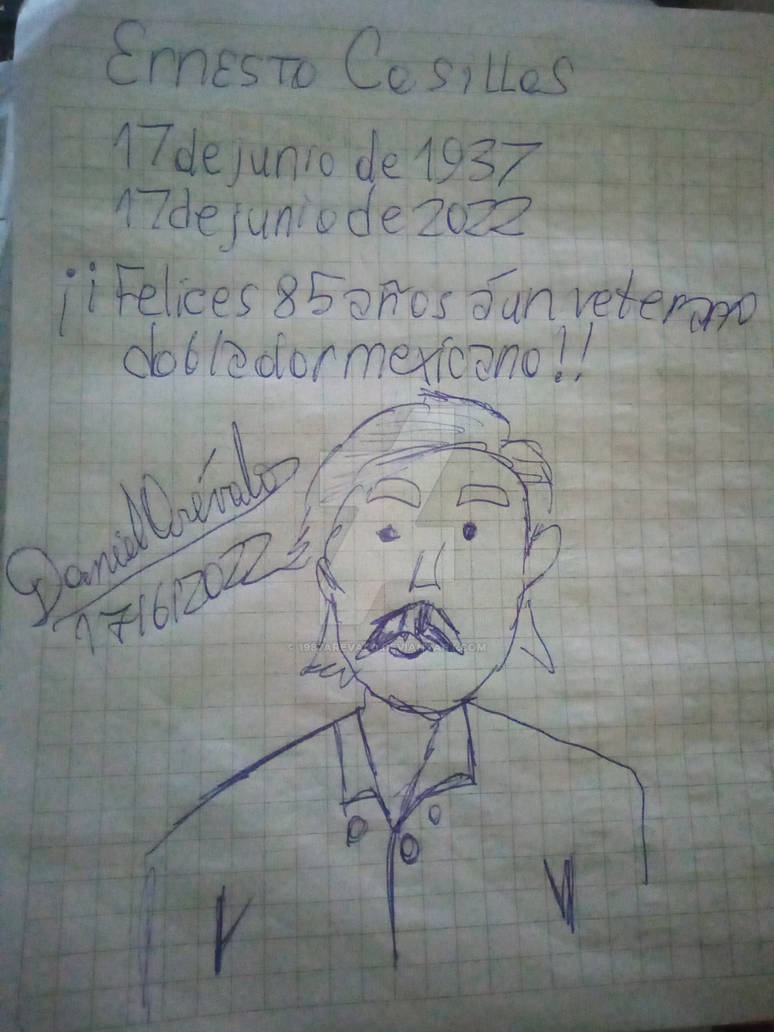 Ernesto Casillas
17 de junio de 1937
17 de junio de 2022
¡¡Felices 85 años á un veterano
doblador mexicano!!
Daniel Arévalo
17/6/2022